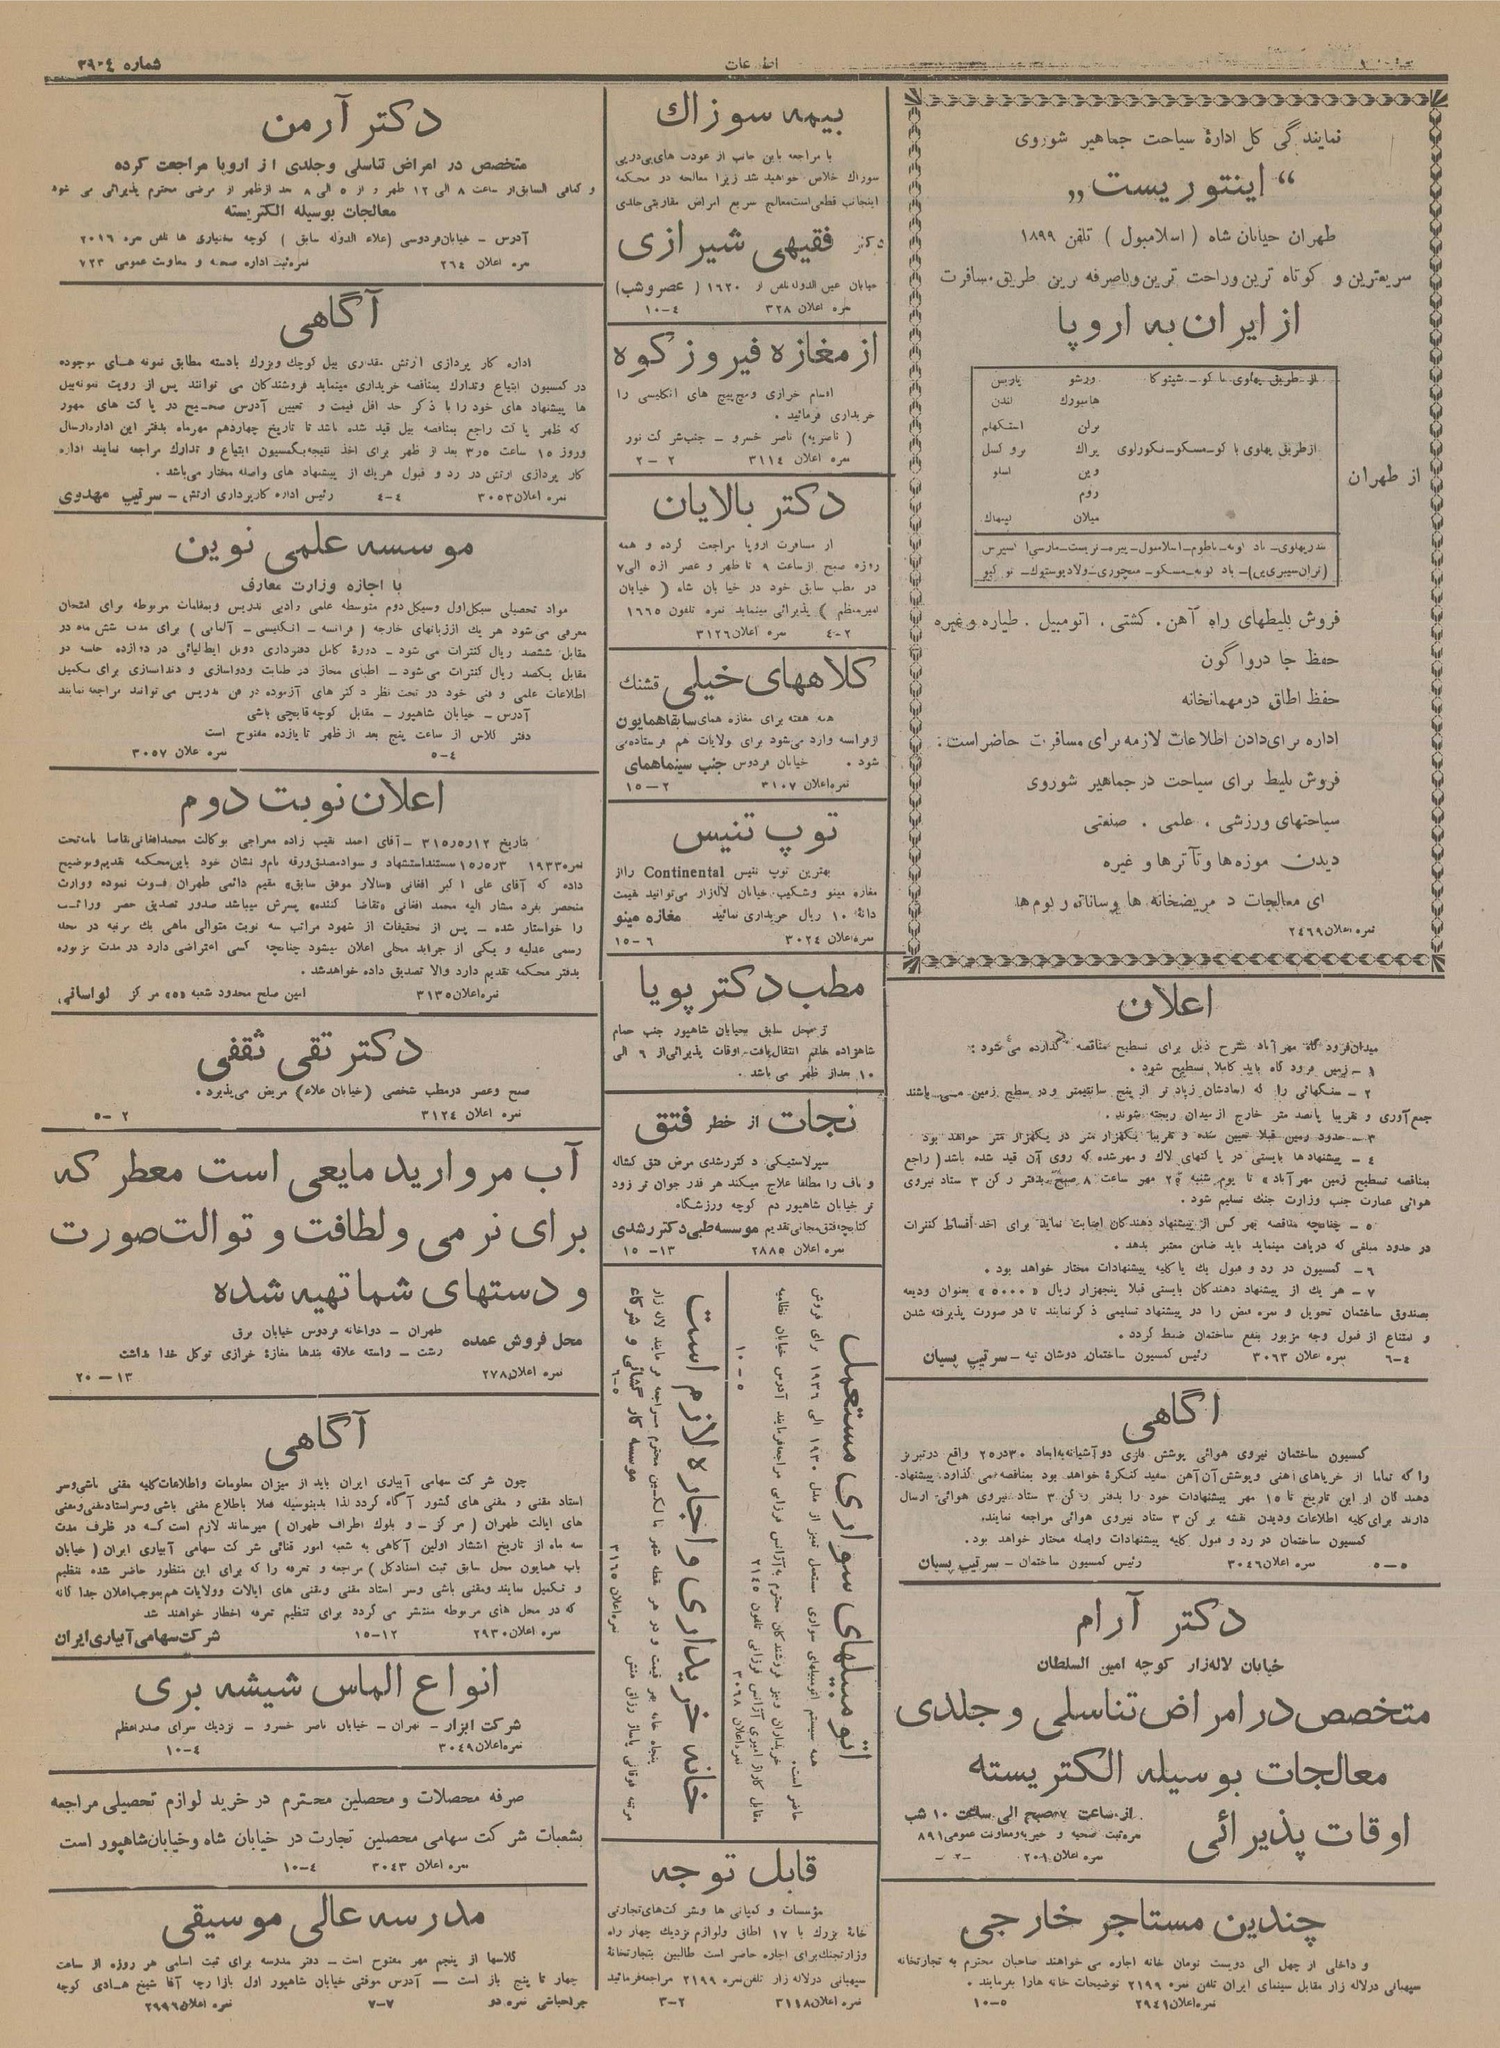 اطلاعات
شماره ۳۹۰٤
نمایندگی کل ادارهٔ سیاحت جماهیر شوروی
“ اینتوریست „
طهران خیابان شاه ( اسلامبول ) تلفن ۱۸۹۹
سریعترین و کوتاه ترین وراحت ترین وباصرفه ترین طریق مسافرت
از ایران به اروپا
از طهران
ازطریق پهلوی با کو - شپتوکا
ورشو پاریس
هامبورك لندن
برلن استکهلم
ازطریق پهلوی با کو-مسکو-نگورلوی
پراك بروکسل
وین اسلو
روم
میلان
فروش بلیطهای راه آهن . کشتی . اتومبیل . طیاره وغیره
حفظ جا درواگون
حفظ اطاق درمهمانخانه
اداره برای دادن اطلاعات لازمه برای مسافرت حاضراست .
فروش بلیط برای سیاحت در جماهیر شوروی
سیاحتهای ورزشی . علمی . صنعتی
دیدن موزه ها وتآترها و غیره
ای معالجات در مریضخانه ها وساناتوریوم ها
نمره اعلان ۲٤٦۹
اعلان
میدان فرود گاه مهرآباد بشرح ذیل برای تسطیح بمناقصه گذارده می شود :
۱ - زمین فرود گاه باید کاملا تسطیح شود .
۲ - سنگهائی را که ابعادشان زیاد تر از پنج سانتیمتر ودر سطح زمین می باشند
جمع آوری و تقریبا پانصد متر خارج ازمیدان ریخته شوند .
۳ - حدود زمین قبلا تعیین شده و تقریبا یکهزار متر در یکهزار متر خواهد بود
٤ - پیشنهاد ها بایستی در پا کتهای لاك و مهرشده که روی آن قید شده باشد ( راجع
بمناقصه تسطیح زمین مهرآباد » تا یوم شنبه مهر ساعت ۸ صبح بدفتر رکن ۳ ستاد نیروی
هوائی عمارت جنب وزارت جنك تسلیم شود .
٥ - چنانچه مناقصه بهر کس از پیشنهاد دهندکان اصابت نماید برای اخذ اقساط کنترات
در حدود مبلغی که دریافت مینماید باید ضامن معتبر بدهد .
٦ - کمسیون در رد و قبول یك یا کلیه پیشنهادات مختار خواهد بود .
۷ - هر یك از پیشنهاد دهندکان بایستی قبلا پنجهزار ریال «٥۰۰۰» بعنوان ودیعه
بصندوق ساختمان تحویل و نمره قبض را در پیشنهاد تسلیمی ذکرنمایند تا در صورت پذیرفته شدن
و امتناع از قبول وجه مزبور بنفع ساختمان ضبط گردد .
٤-٦ نمره اعلان ۳۰٦۳ رئیس کمسیون ساختمان دوشان تپه - سرتیپ پسیان
آگاهی
کمسیون ساختمان نیروی هوائی پوشش فلزی دو آشیانه بابعاد ۳۰در۲٥ واقع درتبریز
را که تماما از خرپاهای آهنی و پوشش آن آهن سفید کنگره خواهد بود بمناقصه می گذارد. پیشنهاد-
دهند گان از این تاریخ تا ۱٥ مهر پیشنهادات خود را بدفتر رکن ۳ ستاد نیروی هوائی ارسال
دارند برای کلیه اطلاعات ودیدن نقشه بر کن ۳ ستاد نیروی هوائی مراجعه نمایند.
کمسیون ساختمان در رد و قبول کلیه پیشنهادات واصله مختار خواهد بود.
٥-٥ نمره اعلان ۳۰٤٦ رئیس کمسیون ساختمان - سرتیپ پسیان
دکتر آرام
خیابان لاله زار کوچه امین السلطان
متخصص در امراض تناسلی وجلدی
معالجات بوسیله الکتریسته
اوقات پذیرائی
از ساعت ۷ صبح الی ساعت ۱۰ شب
نمره ثبت صحیه و خیریه ومعاونت عمومی ۸۹۱
چندین مستاجر خارجی
و داخلی از چهل الی دویست تومان خانه اجاره می خواهند صاحبان محترم به تجارتخانه
سپهبانی درلاله زار مقابل سینمای ایران تلفن نمره ۲۱۹۹ توضیحات خانه هارا بفرمایند .
نمره اعلان ۲۹٤۱ ٥-۱۰
بیمه سوزاك
با مراجعه باین جانب از عودت های پی درپی
سوزاك خلاص خواهید شد زیرا معالجه در محکمه
اینجانب قطعی است معالج سریع امراض مقاربتی جلدی
دکتر فقیهی شیرازی
خیابان عین الدوله تلفن از ۱٦۲۰ ( عصر وشب)
نمره اعلان ۳۲۸ ٤-۱۰
از مغازه فیروز کوه
اقسام خرازی و مچ پیچ های انگلیسی را
خریداری فرمائید .
( ناصریه) ناصر خسرو - جنب شرکت نور
نمره اعلان ۳۱۱٤ ۲-۲
دکتر بالایان
از مسافرت اروپا مراجعت کرده و همه
روزه صبح ازساعت ۹ تا ظهر و عصر از٥ الی۷
در مطب سابق خود در خیا بان شاه ( خیابان
امیرمنظم ) پذیرائی مینماید نمره تلفون ۱٦٦٥
نمره اعلان ۳۱۲٦ ۲-٤
کلاههای خیلی قشنك
همه هفته برای مغازه همای سابقاهمایون
ازفرانسه وارد می شود برای ولایات هم فرستاده می
شود . خیابان فردوس جنب سینماهمای
نمره اعلان ۳۱۰۷ ۲-۱٥
توپ تنیس
بهترین توپ تنیس Continental رااز
مغازه مینو وشکیب خیابان لاله زار می توانید بقیمت
دانهٔ ۱۰ ریال خریداری نمائید مغازه مینو
نمره اعلان ۳۰۲٤ ٦-۱٥
مطب دکتر پویا
از محل سابق بخیابان شاهپور جنب حمام
شاهزاده خانم انتقال یافت. اوقات پذیرائی از ٦ الی
۱۰ بعداز ظهر می باشد .
نجات از خطر فتق
سیرلاستیکی دکتررشدی مرض فتق کشاله
و ناف را مطلقا علاج میکند هر قدر جوان تر زود
تر خیابان شاهپور دم کوچه ورزشگاه
کتابچه فتق مجانی تقدیم موسسه طبی دکتر رشدی
نمره اعلان ۲۸۸٥ ۱۳-۱٥
اتومبیلهای سواری مستعمل
همه سیستم اتومبیلهای سواری مستعمل تمیز از مدل ۱۹۳۰ الی ۱۹۳٦ برای فروش
حاضر است .
خریداران ونیز فروشندکان محترم به آژانس فرزانی مراجعه فرمایند آدرس خیابان نظامیه
مقابل کاراژ امیری آژانس فرزانی تلفون ۲۱٤٥
نمره اعلان ۳۰٦۸ ٥-۱۰
خانه خریداری و اجاره لازم است
پنجاه خانه بهر قیمت و در هر نقطه شهر مالکین محترم مراجعه فرمایند لاله زار
مرتبه فوقانی پاساژ رزاق منش موسسه کار گشائی و شرکاء
نمره اعلان ۳۱٦٥ ٥-٦
قابل توجه
مؤسسات و کمپانی ها وشرکت های تجارتی
خانهٔ بزرك با ۱۷ اطاق ولوازم نزدیك چهار راه
وزارتجنك برای اجاره حاضر است طالبین بتجارتخانهٔ
سپهبانی درلاله زار تلفن نمره ۲۱۹۹ مراجعه فرمائید
نمره اعلان ۳۱۱۸ ۲-۳
دکتر آرمن
متخصص در امراض تناسلی وجلدی از اروپا مراجعت کرده
و کمافی السابق از ساعت ۸ الی ۱۲ ظهر و از ٥ الی ۸ بعد ازظهر از مرضی محترم پذیرائی می شود
معالجات بوسیله الکتریسته
آدرس - خیابان فردوسی (علاء الدوله سابق ) کوچه بختیاری ها تلفن نمره ۲۰۱٦
نمره اعلان ۲٦٤ نمره ثبت اداره صحیه و معاونت عمومی ۷۲۳
آگاهی
اداره کار پردازی ارتش مقداری بیل کوچك وبزرك بادسته مطابق نمونه هـای موجوده
در کمسیون ابتیاع وتدارك بمناقصه خریداری مینماید فروشندکان می توانند پس از رویت نمونه بیل
ها پیشنهاد های خود را با ذکر حد اقل قیمت و تعیین آدرس صحـیح در پا کت های ممهور
که ظهر پا کت راجع بمناقصه بیل قید شده باشد تا تاریخ چهاردهم مهرماه بدفتر این اداره ارسال
وروز ۱٥ ساعت ۳ر٥ بعد از ظهر برای اخذ نتیجه بکمسیون ابتیاع و تدارك مراجعه نمایند اداره
کار پردازی ارتش در رد و قبول هریك از پیشنهاد های واصله مختار می باشد .
نمره اعلان ۳۰٥۳ ٤-٤ رئیس اداره کارپردازی ارتش - سرتیپ مهدوی
موسسه علمی نوین
با اجازه وزارت معارف
مواد تحصیلی سیکل اول وسیکل دوم متوسطه علمی وادبی تدریس وبمقامات مربوطه برای امتحان
معرفی می شود هر یك اززبانهای خارجه ( فرانسه - انگلیسی - آلمانی ) برای مدت شش ماه در
مقابل ششصد ریال کنترات می شود - دورهٔ کامل دفترداری دوبل ایطالیائی در دوازده جلسه دو
مقابل یکصد ریال کنترات می شود - اطبای مجاز در طبابت ودواسازی و دندانسازی برای تکمیل
اطلاعات علمی و فنی خود در تحت نظر دکتر های آزموده در فن تدریس می توانند مراجعه نمایند
آدرس - خیابان شاهپور - مقابل کوچه قاپچی باشی
دفتر کلاس از ساعت پنج بعد از ظهر تا یازده مفتوح است
٤-٥ نمره اعلان ۳۰٥۷
اعلان نوبت دوم
بتاریخ ۱۲ر٥ر۳۱٥ - آقای احمد نقیب زاده معراجی بوکالت محمدافغانی تقاضا نامه تحت
نمره ۱۹۳۳ ۳ر٥ر۱٥ بمستنداستشهاد و سوادمصدق ورقه نام و نشان خود باین محکمه تقدیم وتوضیح
داده که آقای علی ا کبر افغانی «سالار موفق سابق» مقیم دائمی طهران فـوت نموده ووارث
منحصر بفرد مشار الیه محمد افغانی «تقاضا کننده» پسرش میباشد صدور تصدیق حصر وراثـت
را خواستار شده - پس از تحقیقات از شهود مراتب سه نوبت متوالی ماهی یك مرتبه در مجله
رسمی عدلیه و یکی از جراید محلی اعلان میشود چنانچه کسی اعتراضی دارد در مدت مزبوره
بدفتر محکمه تقدیم دارد والا تصدیق داده خواهدشد .
نمره اعلان ۳۱۳٥ امین صلح محدود شعبه «٥» مر کز لواسانی
دکتر تقی ثقفی
صبح وعصر درمطب شخصی (خیابان علاء) مریض می پذیرد .
نمره اعلان ۳۱۲٤ ۲-٥
آب مروارید مایعی است معطر که
برای نرمی ولطافت و توالت صورت
و دستهای شما تهیه شده
محل فروش عمده
طهران - دواخانه فردوس خیابان برق
رشت - راسته علاقه بندها مغازهٔ خرازی توکل خدا
نمره اعلان ۲۷۸ ۱۳-۲۰
آگاهی
چون شرکت سهامی آبیاری ایران باید از میزان معلومات واطلاعات کلیه مقنی باشی وسر
استاد مقنی و مقنی های کشور آگاه گردد لذا بدینوسیله فعلا باطلاع مقنی باشی وسر استاد مقنی ومقنی
های ایالت طهران ( مر کز - و بلوك اطراف طهران ) میرساند لازم است کـه در ظرف مدت
سه ماه از تاریخ انتشار اولین آگاهی به شعبه امور قناتی شرکت سهامی آبیاری ایران ( خیابان
باب همایون محل سابق ثبت اسنادکل ) مراجعه و تعرفه را که برای این منظور حاضر شده تنظیم
و تکمیل نمایند ومقنی باشی وسر استاد مقنی ومقنی های ایالات وولایات هم بموجب اعلان جدا گانه
که در محل های مربوطه منتشر می گردد برای تنظیم تعرفه اخطار خواهند شد
نمره اعلان ۲۹۳۰ ۱۲-۱٥ شرکت سهامی آبیاری ایران
انواع الماس شیشه بری
شرکت ابزار - تهران - خیابان ناصر خسرو - نزدیك سرای صدراعظم
نمره اعلان ۳۰٤۹ ٤-۱۰
صرفه محصلات و محصلین محترم در خرید لوازم تحصیلی مراجعه
بشعبات شرکت سهامی محصلین تجارت در خیابان شاه وخیابان شاهپور است
نمره اعلان ۳۰٤۳ ٤-۱۰
مدرسه عالی موسیقی
کلاسها از پنجم مهر مفتوح است - دفتر مدرسه برای ثبت اسامی هر روزه از ساعت
چهار تا پنج باز است - آدرس موقتی خیابان شاهپور اول بازارچه آقا شیخ هـادی کوچه
جراحباشی نمره دو ۷-۷ نمره اعلان ۲۹۹٦